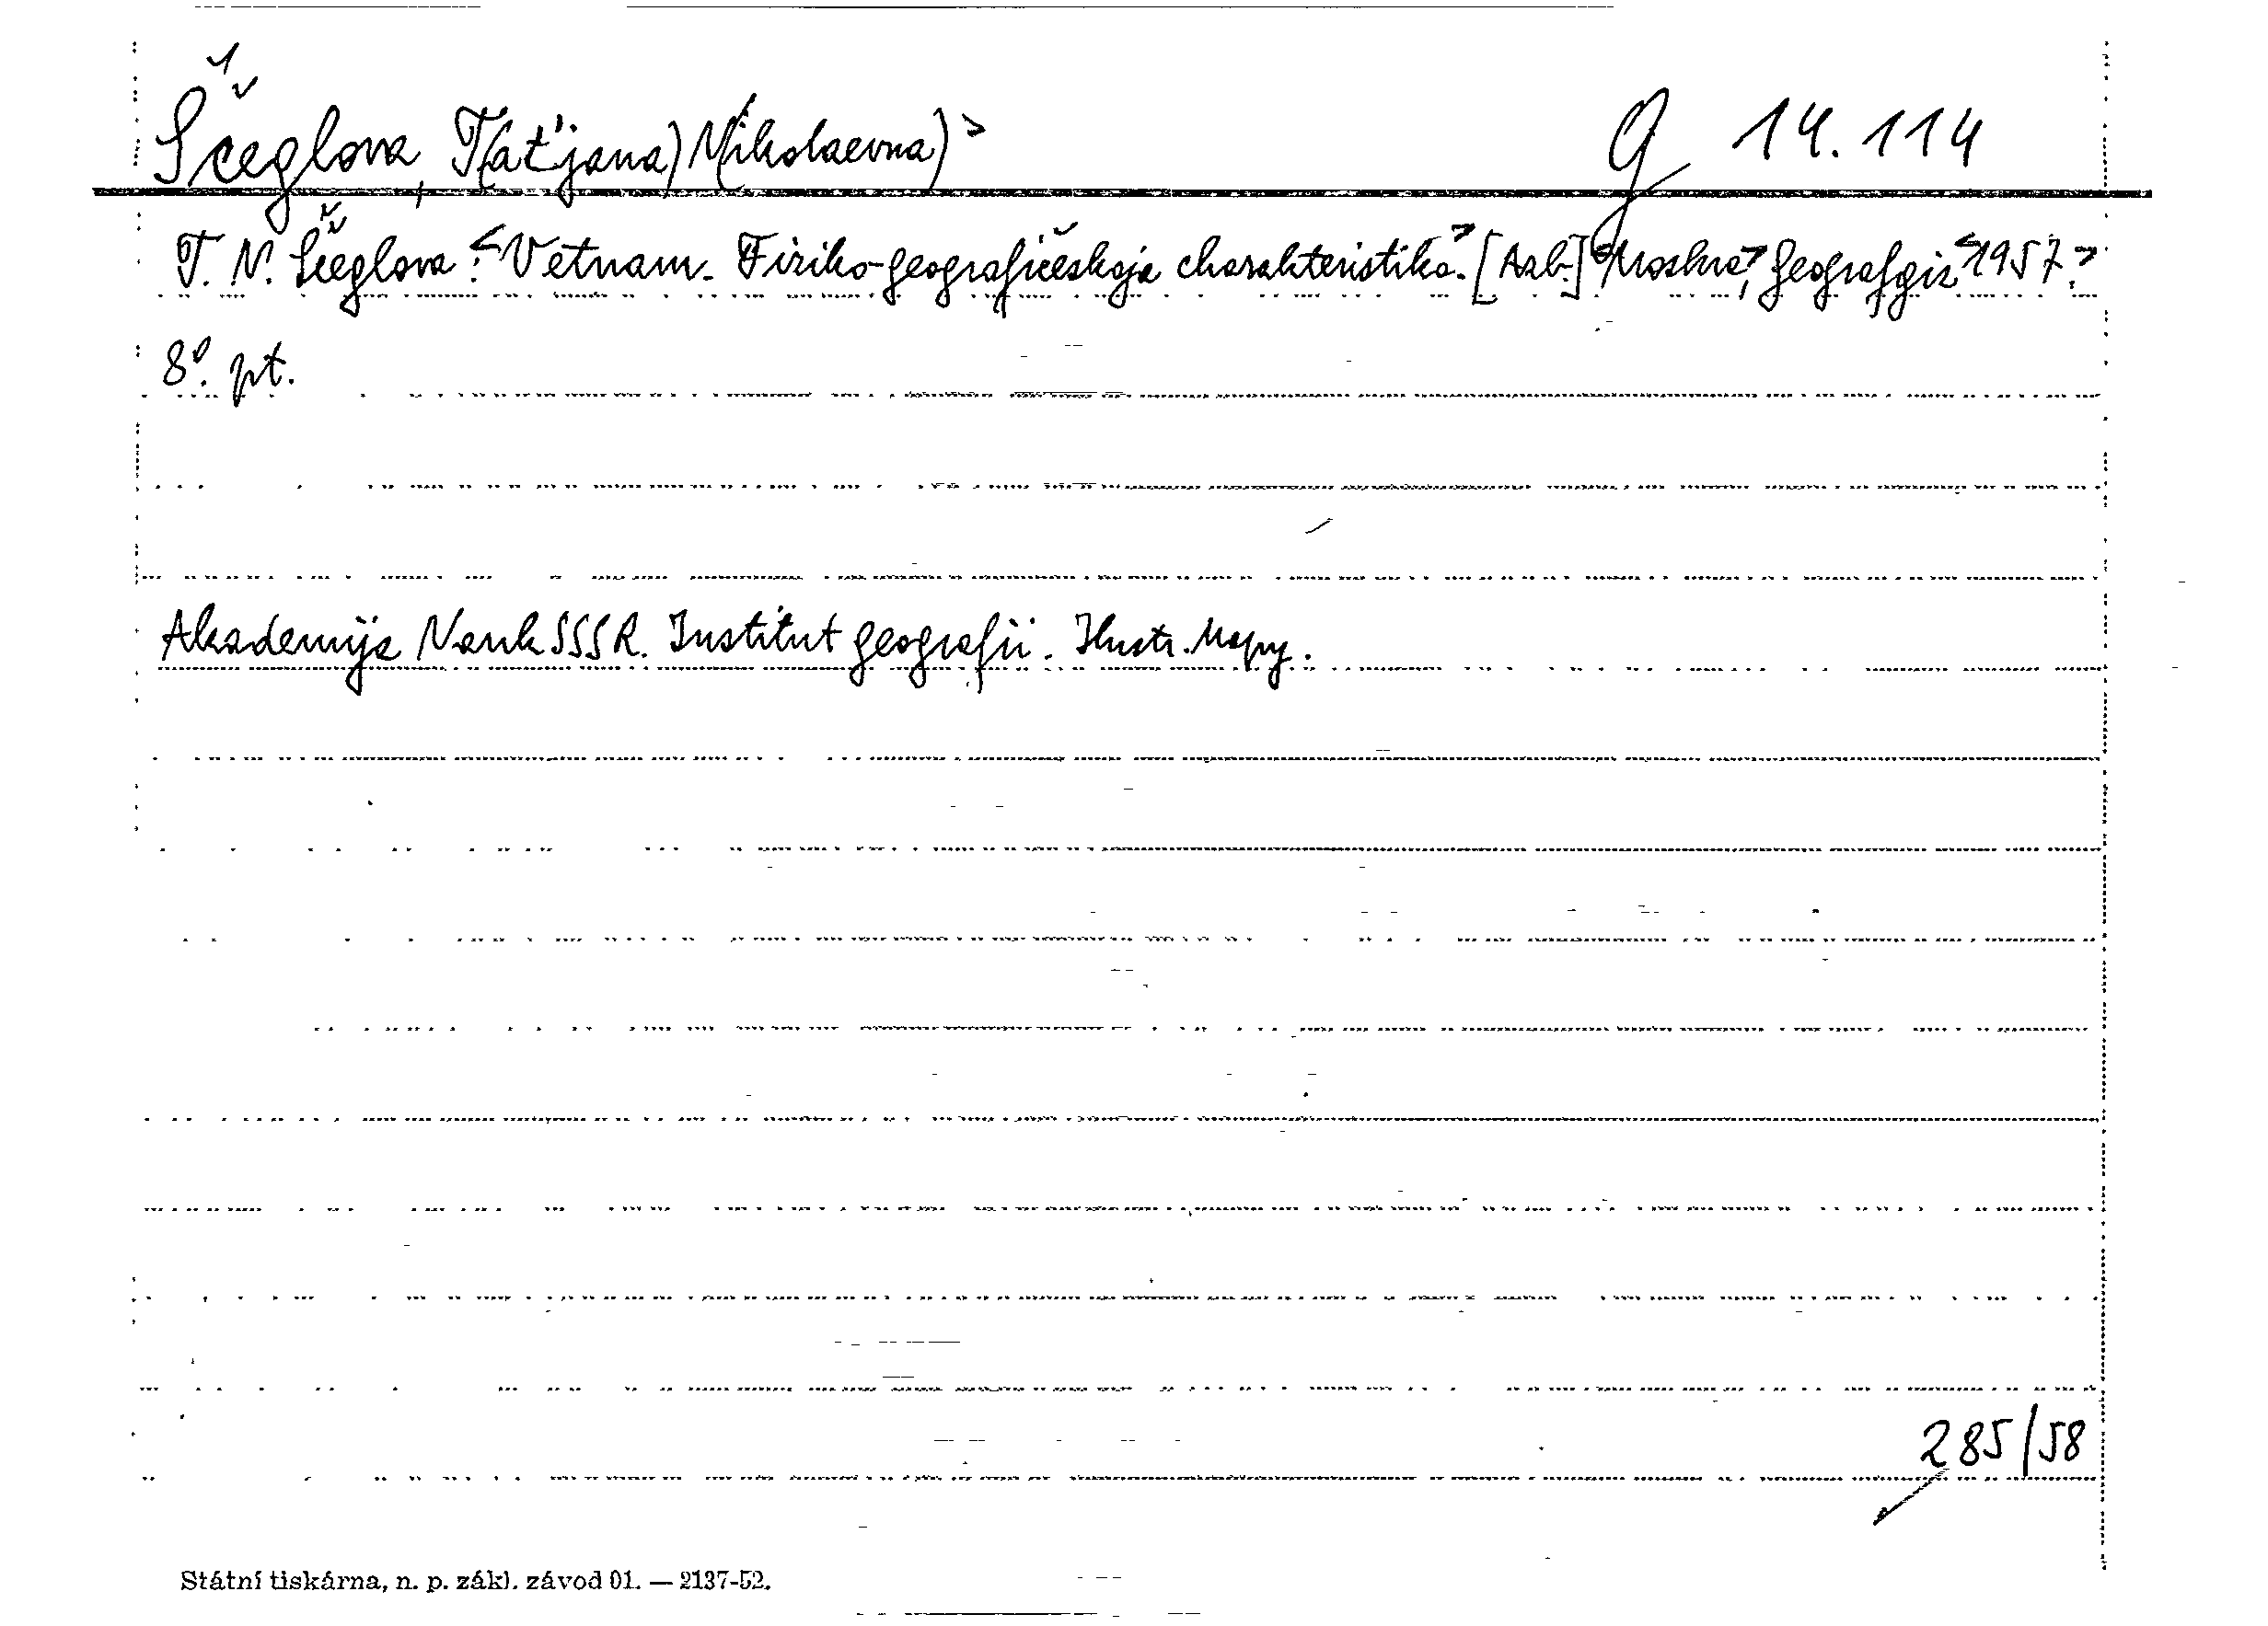 Ščeglova, T(at'jana) N(ikolaevna)> G 14.114
T. N. Ščeglova: <Vetnam. Fiziko-geografičeskaja charakteristika.> [Azb.] <Moskva>, Geografgiz <1957.>
8°. pt.
Akademija Nauk SSSR. Institut geografii. Ilustr. Mapy.
285/58
Státní tiskárna, n. p. zákl. závod 01. — 2137-52.